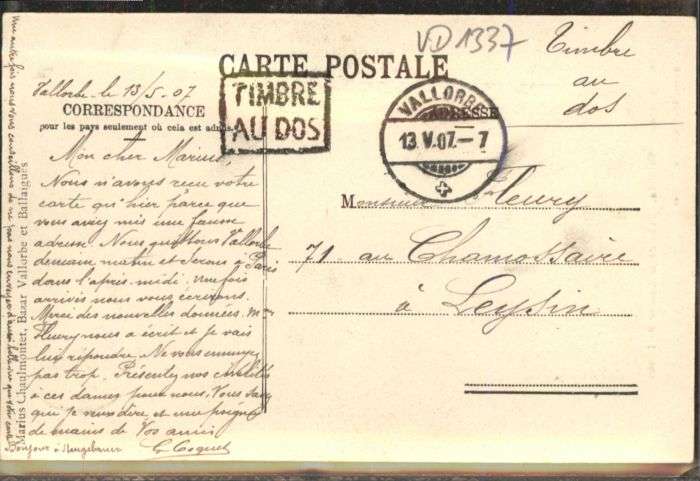 VD 1337
CARTE POSTALE
Timbre
au
dos
TIMBRE
AU DOS
VALLORBE
13.V.07.–7
Vallorbe le 13/5.07
CORRESPONDANCE
pour les pays seulement où cela est admis.
ADRESSE
Mon cher Marius,
Nous n'avons reçu votre
carte qu'hier parce que
vous aviez mis une fausse
adresse. Nous quittons Vallorbe
demain matin et serons à Paris
dans l'après-midi. Une fois
arrivés nous vous écrirons.
Merci des nouvelles données. Mr
Fleury nous a écrit et je vais
lui répondre. Ne vous ennuyez
pas trop. Présentez nos civilités
à ces dames pour nous. Vous
qui je veux dire et une poignée
de mains de vos amis
Bonjour à
Monsieur Fleury
71 au Chamossaire
à Leysin
Marius Chaulmontet, Bazar Vallorbe et Ballaigues